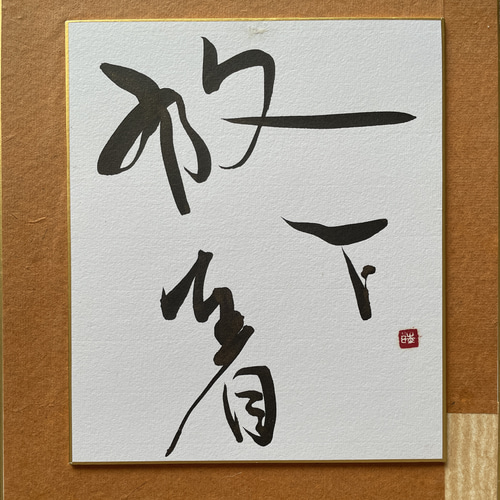 放
下
着